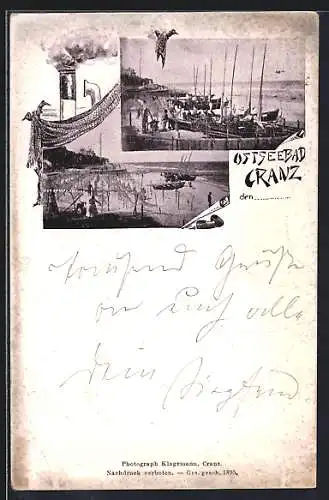 OSTSEEBAD
CRANZ
den
tausend Grüße
an Euch alle
Dein Siegfried.
Photograph Klagemann, Cranz.
Nachdruck verboten. — Ges. gesch. 1895.